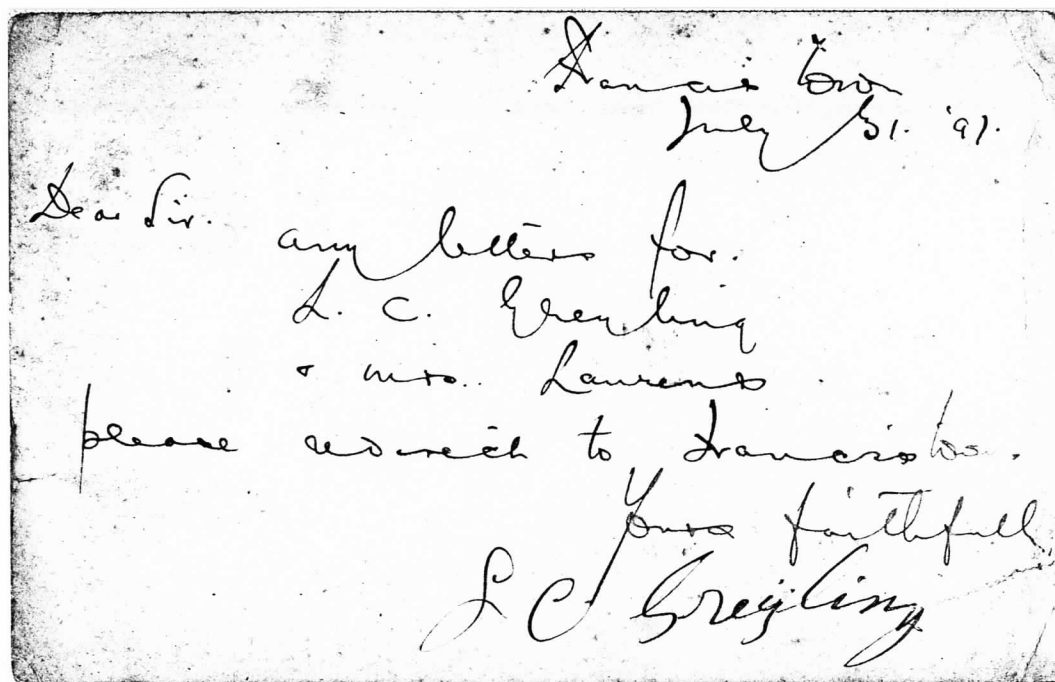 Francis Town
July 31. '97.
Dear Sir.
any letters for.
L. C. Greyling
& Mrs. Laurens
please redirect to Francistown.
Yours faithfull
L C Greyling